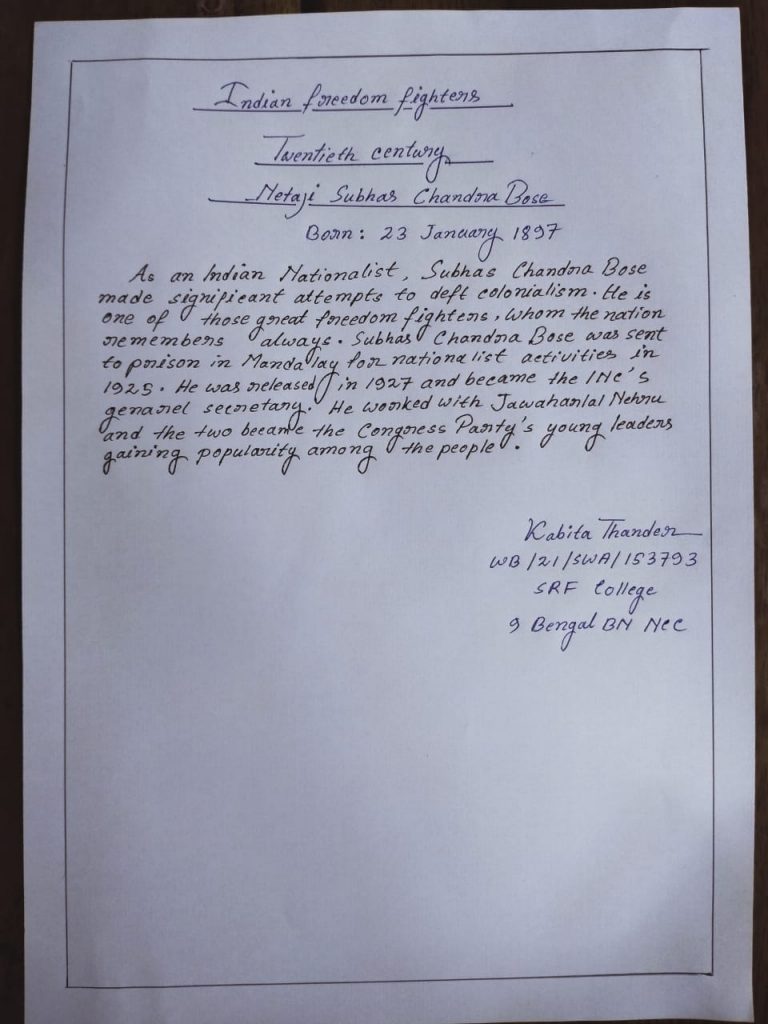 Indian freedom fighters
Twentieth century
Netaji Subhas Chandra Bose
Born: 23 January 1897
As an Indian Nationalist, Subhas Chandra Bose
made significant attempts to deft colonialism. He is
one of those great freedom fighters, whom the nation
remembers always. Subhas Chandra Bose was sent
to prison in Mandalay for nationalist activities in
1925. He was released in 1927 and became the INC's
genarel secretary. He worked with Jawaharlal Nehru
and the two became the Congress Party's young leaders
gaining popularity among the people.
Kabita Thander
WB/21/SWA/153793
SRF College
9 Bengal BN NCC